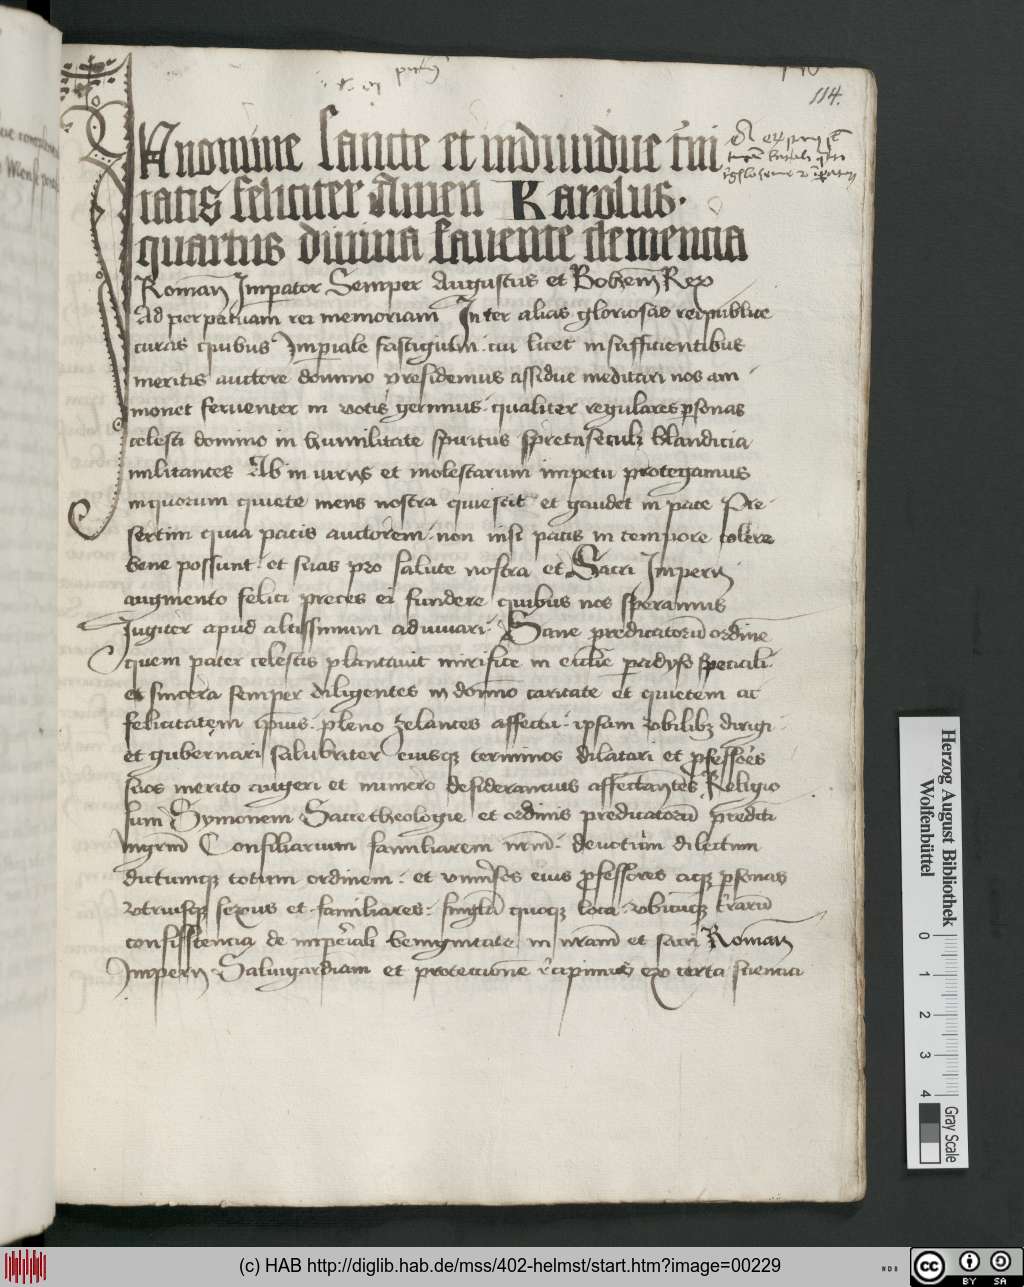 114.
In nomine sancte et indiuidue tⁱni
tatis feliciter Amen Karolus.
quartus diuina fauente clemencia
Romanͫ Imperator Semper Augustus et Bohemͥ Rex
Ad perpetuam rei memoriam Inter alias gloriosas reipublice
curas quibus Imperiale fastigium. cui licet insufficientibus
meritis auctore domino presidemus assidue meditari nos am
monet feruenter in votis gerimus. qualiter regulares ꝑsonas
celesti domino in humilitate spiritus spreta seculi blandicia
militantes Ab iniurijs et molestarum impetu protegamus
in quorum quiete mens nostra quiescit et gaudet in pace Pre
sertim quia pacis auctorem. non nisi pacis in tempore colere
bene possunt. et suas pro salute nostra et Sacri Imperij
augmento felici preces ei fundere quibus nos speramus
Jugiter apud altissimum adiuuari. Sane predicatorū ordinē
quem pater celestis plantauit mirifice in ecclīe paradyso speciali.
et sincera semper diligentes in domino caritate et quietem ac
felicitatem ipius. pleno zelantes affectu. ipsum vbilibꝫ dirigi
et gubernari salubriter eiusqꝫ terminos dilatari et ꝓfessores
suos merito augeri et numero desiderancius affectantes. Religio
sum Symonem Sacre theologie et ordinis predicatorū predicti
mgrm̄ Consiliarium familiarem nrm̄. deuotum dilectum
dictumqꝫ totum ordinem. et vniu͛sos eius ꝓfessores atqꝫ ꝑsonas
vtriusqꝫ sexus et familiares. singula quoqꝫ loca. vbicūqꝫ t͛rarū
consistencia de imperiali benignitate in nram̄ et sacri Roman
Imperij Saluigardiam et proteccionē r͛cipimus ex certa sciencia
Herzog August Bibliothek
Wolfenbüttel
0 1 2 3 4
Gray Scale
(c) HAB http://diglib.hab.de/mss/402-helmst/start.htm?image=00229
cc BY SA